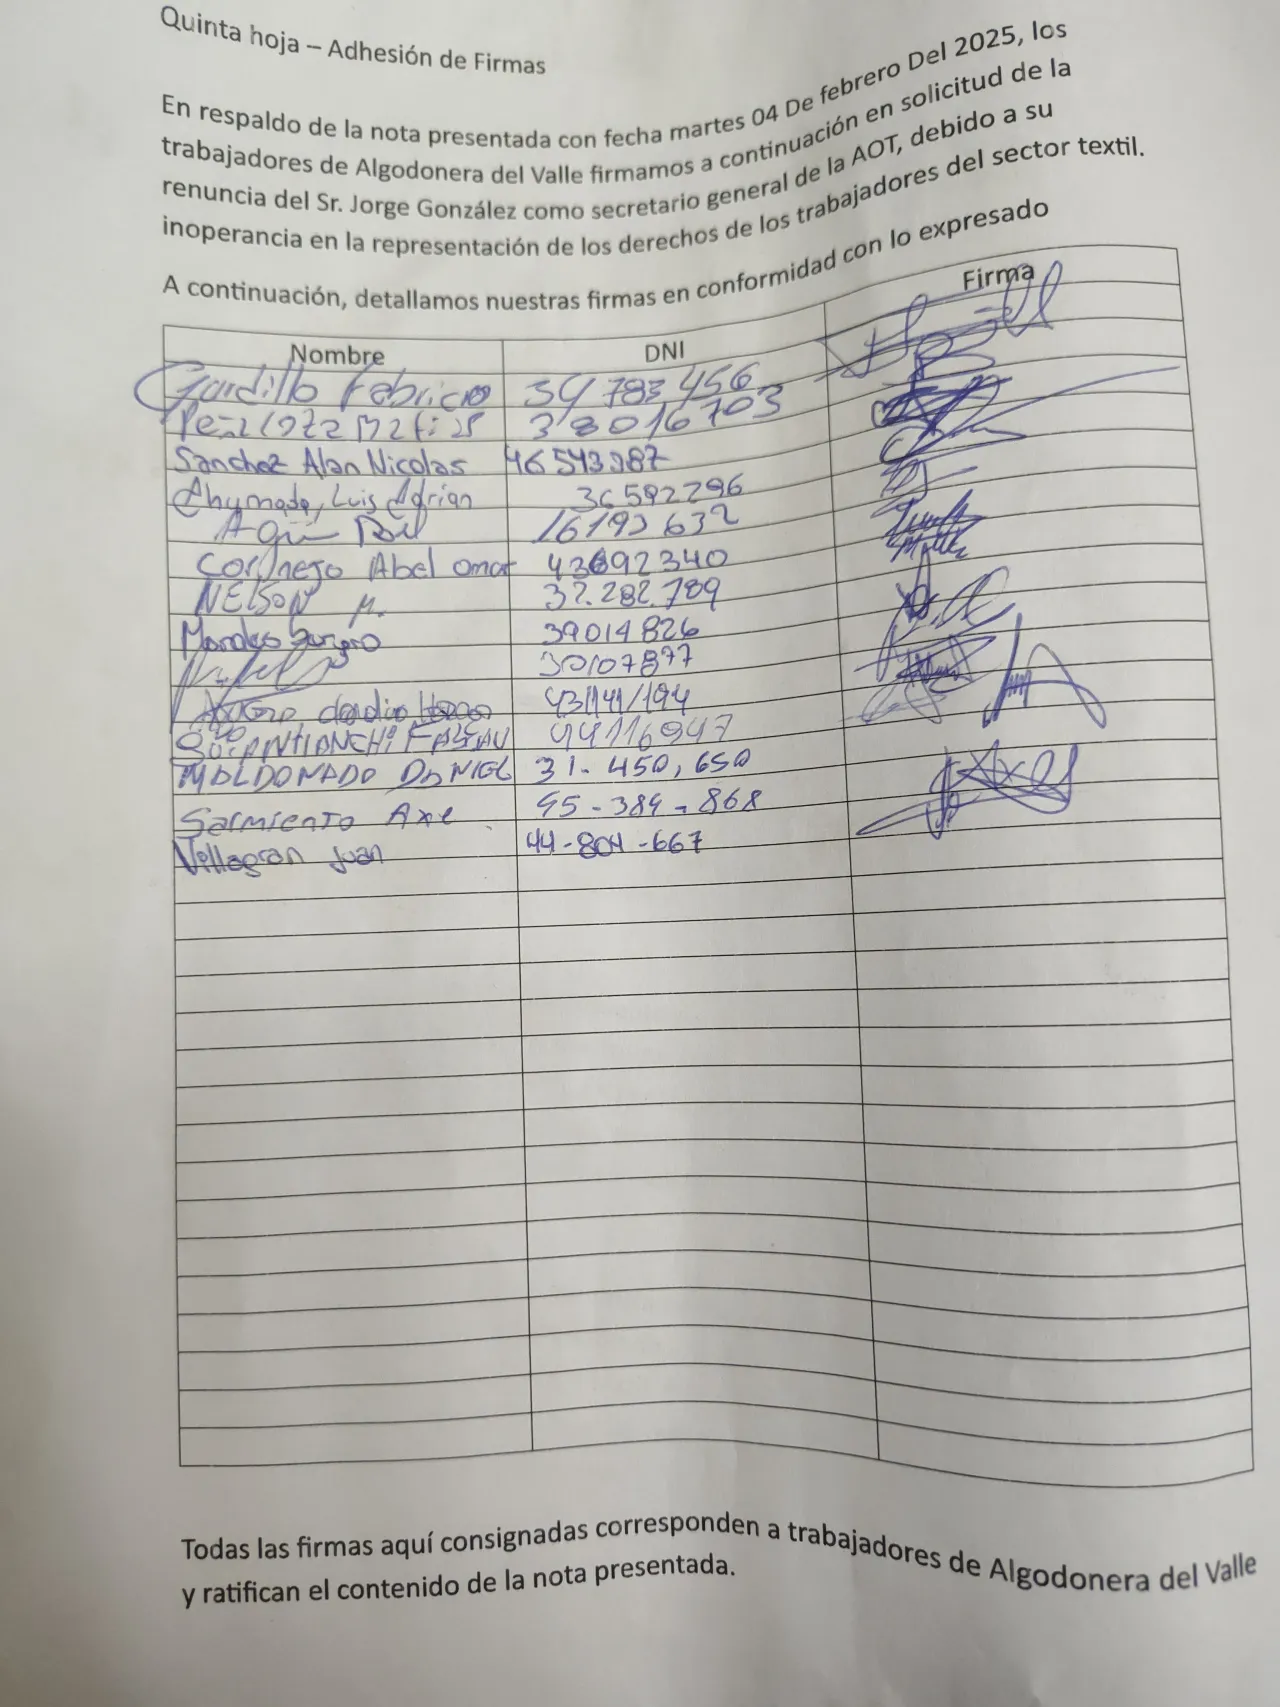 Quinta hoja – Adhesión de Firmas
En respaldo de la nota presentada con fecha martes 04 De febrero Del 2025, los
trabajadores de Algodonera del Valle firmamos a continuación en solicitud de la
renuncia del Sr. Jorge González como secretario general de la AOT, debido a su
inoperancia en la representación de los derechos de los trabajadores del sector textil.
A continuación, detallamos nuestras firmas en conformidad con lo expresado
Nombre DNI Firma
Gordillo Fabricio 34 783 456
38016703
Sanchez Alan Nicolas 46543987
Ahumada, Luis Adrian 36592296
Cornejo Abel omar 43692340
NELSON M. 32.282.789
Morales 39014826
30107877
43141194
44116947
MALDONADO DANIEL 31-450,650
Sarmiento Axel 45-384-868
Villagran Juan 44-804-667
Todas las firmas aquí consignadas corresponden a trabajadores de Algodonera del Valle
y ratifican el contenido de la nota presentada.